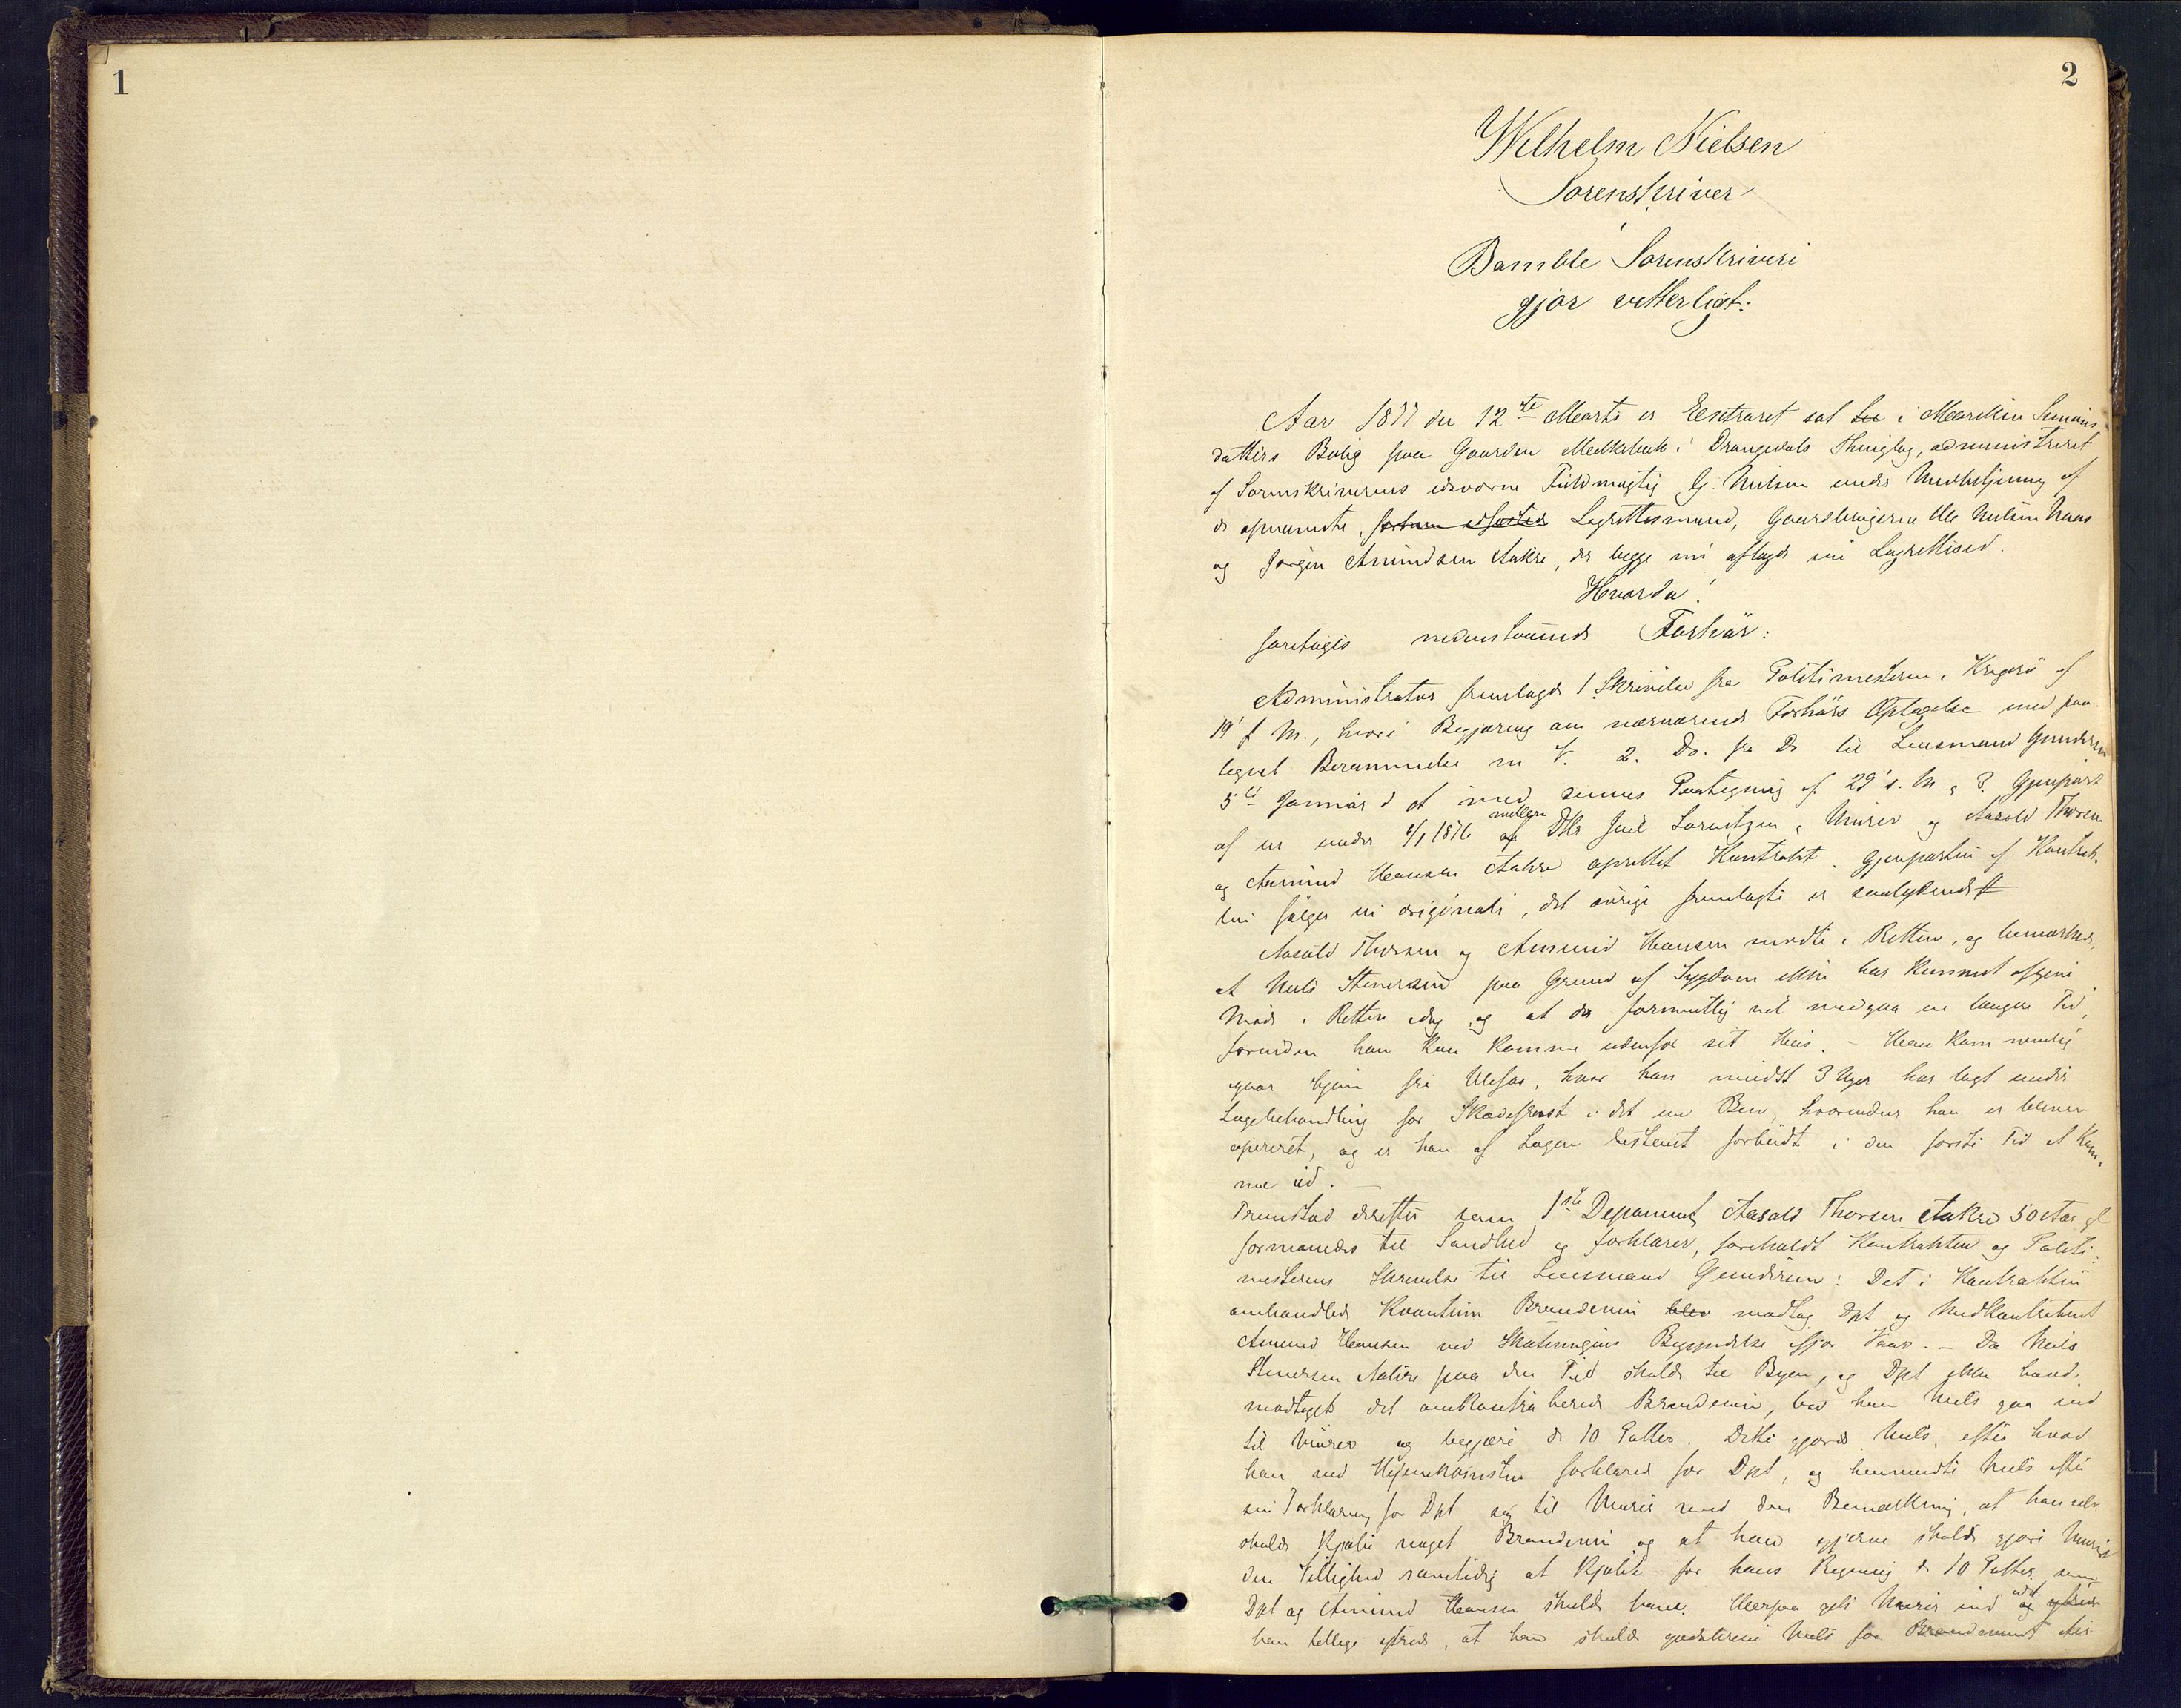 1
2
Wilhelm Nielsen
Sorenskriver
i
Bamble Sorenskriveri
gjør vitterligt:
Aar 1877 den 12te Marts er Extraret sat i
datters Bolig paa Gaarden i Drangedals Thinglag, administreret
af Sorenskriverens edsvorne Fuldmægtig G. Nielsen under Medbetjening af
de opnævnte, Lagrettesmænd, Gaardbrugerne Ole Nielsen Naas
og Jørgen Amundsen Aakre, der begge nu aflagde sin Lagrettesed.
Hvorda!
foretoges nedenstaaende Forhør:
Administrator fremlagde 1 Skrivelse fra Politimesteren i Kragerø af
19' f M., hvori Begjæring om nærværende Forhørs Optagelse med paa-
tegnet Berammelse m V. 2. Do. fra Do til Lensmand Gundersen
5te Januar d A med sammes Paategning af 29' s. M & 3. Gjenpart
af en under 1876 mellem DHr Juel Lorentzen & Murer og Aasold Thorsen
og Amund Hansen Aakre oprettet Kontrakt. Gjenparten af Kontrak-
ten følger in originali, det øvrige fremlagte er saalydende #
Aasold Thorsen og Amund Hansen mødte i Retten, og bemærkede,
at Nils Stenersen paa Grund af Sygdom ikke har kunnet afgive
Møde i Retten idag og at der formentlig vil medgaa en længere Tid,
forinden han kan komme udenfor sit Hus. - Han kom nemlig
igaar hjem fra Ulefos, hvor han mindst 3 Uger har lagt under
Lægebehandling for Skade i det ene Ben, hvorunder han er bleven
opereret, og er han af Lægen bestemt forbudt i den første Tid at kom-
me ud. -
Fremstod derefter som 1ste Deponent Aasold Thorsen Aakre 50 Aar gl
formanedes til Sandhed og forklarer, foreholdt Kontrakten og Politi-
mesterens Skrivelse til Lensmand Gundersen: Det i Kontrakten
omhandlede Kvantum Brændevin blev modtog Dpt og Medkontrahent
Amund Hansen ved Begyndelse ifjor Vaar. - Da Nils
Stenersen Aakre paa den Tid skulde til Byen, og Dpt ikke havde
modtaget det omkontraherede Brændevin, bad han Nils gaa ind
til Murer og begjære de 10 Potter. Dette gjorde Nils, efter hvad
han ved Hjemkomsten forklarede for Dpt, og henvendte Nils efter
sin Forklaring for Dpt sig til Murer med den Bemærkning, at han selv
skulde kjøbe noget Brændevin og at han gjerne skulde gjøre Murer
den Tillighed samtidig at kjøbe for hans Regning de 10 Potter, som
Dpt og Amund Hansen skulde have. Herpaa gik Murer ind
han tillige, at han skulde Nils for Brændevinet